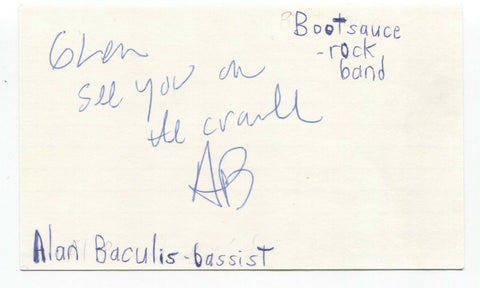 Bootsauce
-rock
band
Glen
see you on
the crawll
AB
Alan Baculis-bassist